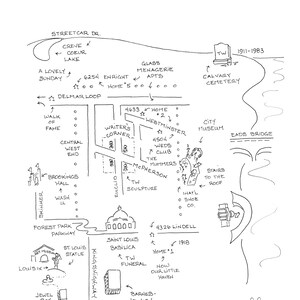 STREETCAR DR.
CREVE
COEUR
LAKE
A LOVELY
SUNDAY
6254
ENRIGHT
HOME 5
GLASS
MENAGERIE
APTS
TW
1911-1983
CALVARY
CEMETERY
DELMAR LOOP
WALK
OF
FAME
4633
HOME
2
WRITER'S
CORNER
WESTMINSTER
CITY
MUSEUM
CENTRAL
WEST
END
4504
WEDS
CLUB
THE
MUMMERS
EADS BRIDGE
MCPHERSON
TW
SCULPTURE
EUCLID
BROOKINGS
HALL
WASH
U.
SKINKER
STAIRS
TO THE
ROOF
INT'L
SHOE
CO.
FOREST PARK
PARKWAY
4326 LINDELL
ST. LOUIS
STATUE
SAINT LOUIS
BASILICA
TW
FUNERAL
1918
HOME 1
OUR LITTLE
HAVEN
KINGSHIGHWAY
LOUIS IX
JEWEL
BOX
BARNES-